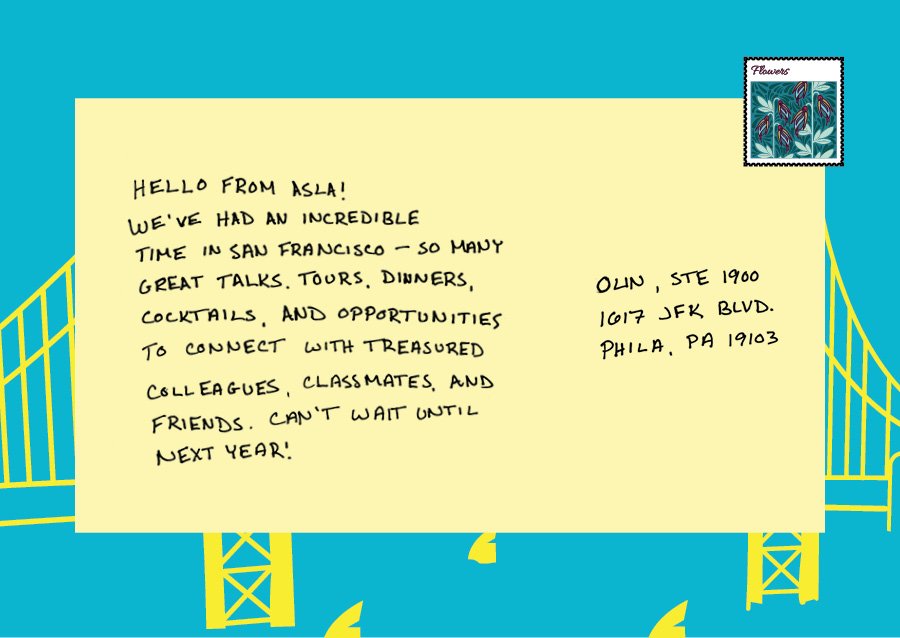 Flowers
HELLO FROM ASLA!
WE'VE HAD AN INCREDIBLE
TIME IN SAN FRANCISCO – SO MANY
GREAT TALKS, TOURS, DINNERS,
COCKTAILS, AND OPPORTUNITIES
TO CONNECT WITH TREASURED
COLLEAGUES, CLASSMATES, AND
FRIENDS. CAN'T WAIT UNTIL
NEXT YEAR!
OLIN, STE 1900
1617 JFK BLVD.
PHILA, PA 19103